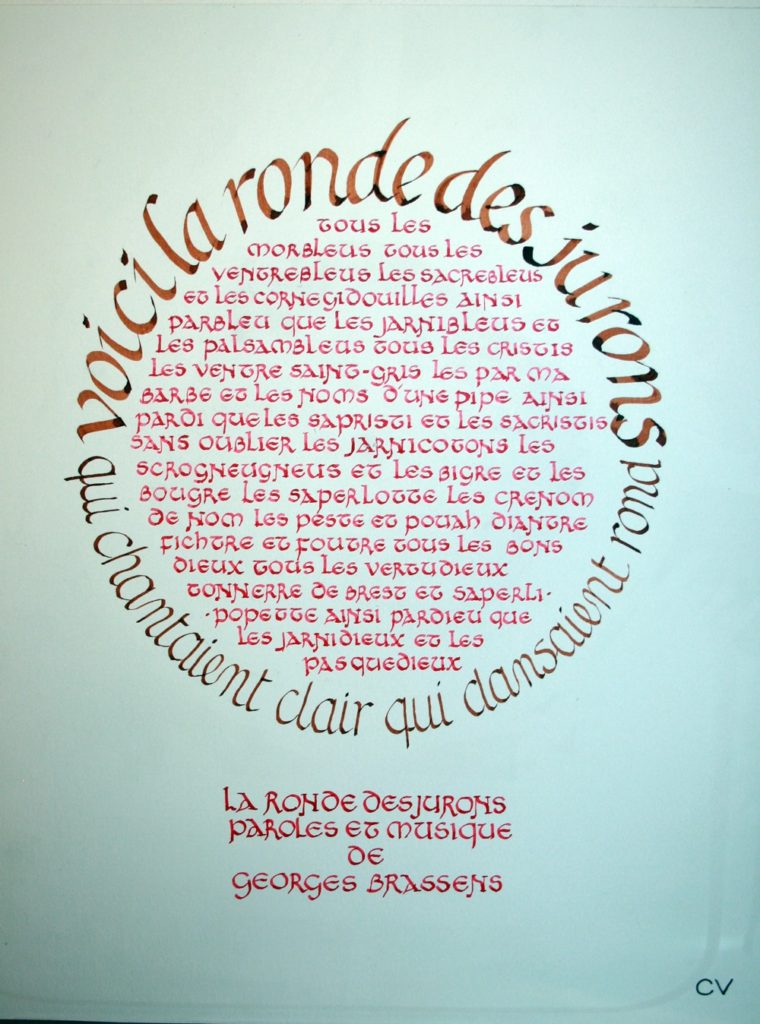 voici la ronde des jurons
qui chantaient clair qui dansaient rond
tous les
morbleus tous les
ventrebleus les sacrebleus
et les cornegidouilles ainsi
parbleu que les jarnibleus et
les palsambleus tous les cristis
les ventre saint-gris les par ma
barbe et les noms d'une pipe ainsi
pardi que les sapristi et les sacristis
sans oublier les jarnicotons les
scrogneugneus et les bigre et les
bougre les saperlotte les crenom
de nom les peste et pouah diantre
fichtre et foutre tous les bons
dieux tous les vertudieux
tonnerre de brest et saperli-
-popette ainsi pardieu que
les jarnidieux et les
pasquedieux
la ronde des jurons
paroles et musique
de
georges brassens
CV